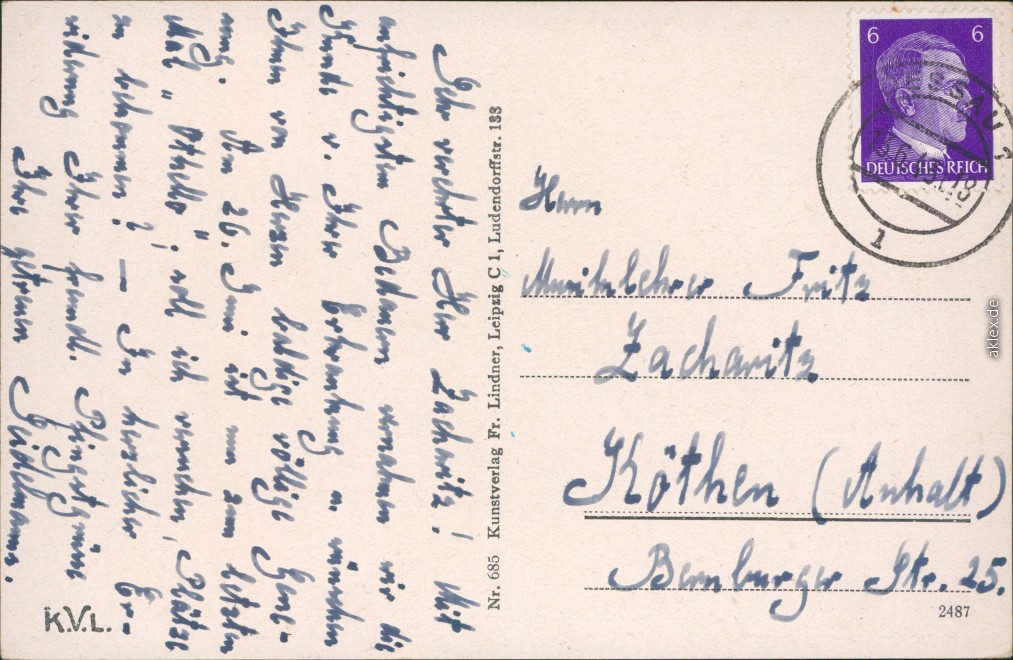 Sehr verehrter Herr Zacharitz! Mit
aufrichtigstem Bedauern vernehmen wir die
Kunde v. Ihrer Erkrankung u. wünschen
Ihnen von Herzen baldige völlige Gene-
sung. Am 26. Juni ist nun zum letzten
Mal "Othello"; soll ich versuchen, Plätze
zu bekommen? — In herzlicher Er-
widerung Ihrer freundl. Pfingstgrüße
Ihre getreuen
K.V.L.
Nr. 685 Kunstverlag Fr. Lindner, Leipzig C 1, Ludendorffstr. 133
6 6
DEUTSCHES REICH
1
Herrn
Musiklehrer Fritz
Zacharitz
Köthen (Anhalt)
Bernburger Str. 25.
2487
aklex.de